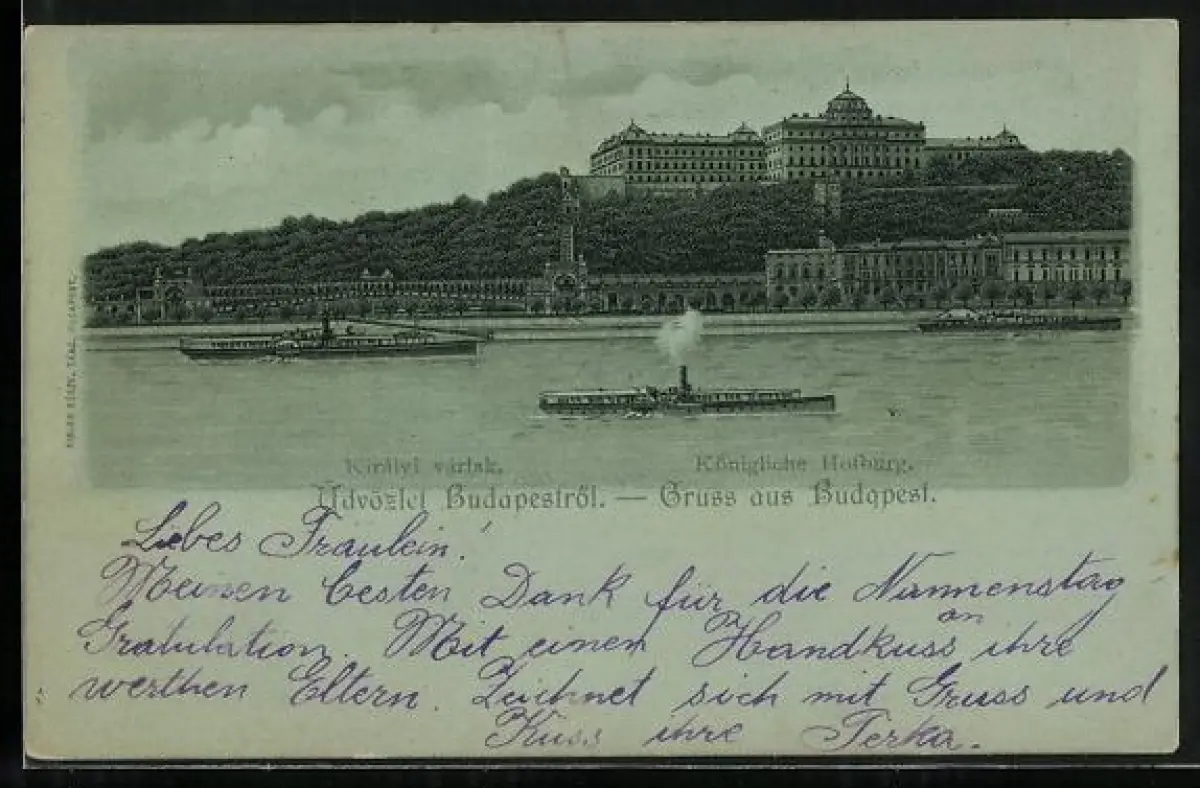 Királyi várlak.
Königliche Hofburg.
Üdvözlet Budapestről. — Gruss aus Budapest.
Liebes Fraulein!
Meinen besten Dank für die Nannenstag
Gratulation. Mit einen Handkuss an ihre
werthen Eltern. Zeichnet sich mit Gruss und
Kuss ihre Terka.